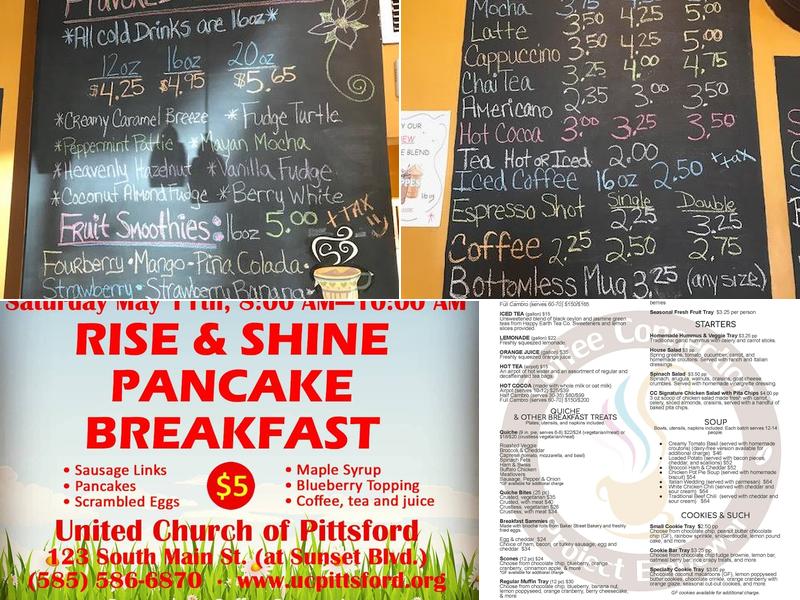 *All cold Drinks are 16oz*
12oz 16oz 20oz
$4.25 $4.95 $5.65
*Creamy Caramel Breeze *Fudge Turtle
*Peppermint Pattie *Mayan Mocha
*Heavenly Hazelnut *Vanilla Fudge
*Coconut Almond Fudge *Berry White
Fruit Smoothies: 16oz 5.00 + TAX
Fourberry • Mango • Pina Colada •
Strawberry • Strawberry Banana
Mocha 3.75 4.50 5.00
Latte 3.50 4.25 5.00
Cappuccino 3.50 4.25 5.00
Chai Tea 3.25 4.00 4.75
Americano 2.35 3.00 3.50
Hot Cocoa 3.00 3.25 3.50
Tea Hot or Iced 2.00
Iced Coffee 16oz 2.50 +tax
Single Double
Espresso Shot 2.25 3.25
Coffee 2.25 2.50 2.75
Bottomless Mug 3.25 (any size)
Saturday May 11th, 8:00 AM—10:00 AM
RISE & SHINE
PANCAKE
BREAKFAST
• Sausage Links
• Pancakes
• Scrambled Eggs
$5
• Maple Syrup
• Blueberry Topping
• Coffee, tea and juice
United Church of Pittsford
123 South Main St. (at Sunset Blvd.)
(585) 586-6870 · www.ucpittsford.org
Full Cambro (serves 60-70) $150/$165
ICED TEA (gallon) $15
Unsweetened blend of black ceylon and jasmine green
teas from Happy Earth Tea Co. Sweeteners and lemon
slices provided.
LEMONADE (gallon) $22
Freshly squeezed lemonade.
ORANGE JUICE (gallon) $35
Freshly squeezed.
HOT TEA (airpot) $15
An airpot of hot water and an assortment of regular and
decaffeinated tea bags.
HOT COCOA (made with whole milk or oat milk)
Full Cambro (serves 60-70) $150/$200
QUICHE
& OTHER BREAKFAST TREATS
Plates, utensils, and napkins included.
Roasted Veggie
Broccoli & Cheddar
Spinach Feta
Ham & Swiss
Buffalo Chicken
Meatlovers
Sausage, Pepper & Onion
*GF available for additional charge
Quiche Bites (25 pc)
Crusted, vegetarian $35
Crusted, with meat $40
Crustless, vegetarian $26
Crustless, with meat $34
Egg & cheddar $24
Choice of ham, bacon, or turkey sausage, egg and
cheddar $34
Scones (12 pc) $24
*GF available for additional charge.
Regular Muffin Tray (12 pc) $30
Choose from chocolate chip, blueberry, banana nut,
lemon poppyseed, orange cranberry, berry cheesecake,
& more
berries
Seasonal Fresh Fruit Tray $3.25 per person
STARTERS
Homemade Hummus & Veggie Tray $3.25 pp
Traditional garlic hummus with celery and carrot sticks.
House Salad $3 pp
Spring greens, tomato, cucumber, carrot, and
homemade croutons. Served with ranch and Italian
dressings.
Spinach Salad $3.50 pp
Spinach, arugula, walnuts, craisins, goat cheese
crumbles. Served with homemade vinaigrette dressing.
CC Signature Chicken Salad with Pita Chips $4.00 pp
3 oz scoop of chicken salad made fresh with carrot,
celery, sliced almonds, craisins, served with a handful of
baked pita chips.
SOUP
Bowls, utensils, napkins included. Each batch serves 12-14
people.
• Creamy Tomato Basil (served with homemade
croutons) (dairy-free available for
additional charge) $46
• Loaded Potato (served with bacon pieces,
cheddar, and scallions) $52
• Broccoli Ham & Cheddar $52
• Chicken Pot Pie Soup (served with homemade
puff) $54
• Italian Wedding (served with parmesan) $54
• White Chicken Chili (served with cheddar and
sour cream) $54
• Traditional Beef Chili (served with cheddar and
sour cream) $54
COOKIES & SUCH
Small Cookie Tray $2.50 pp
Choose from chocolate chip, peanut butter chocolate
chip (GF), rainbow sprinkle, snickerdoodle, lemon pound
cake, and more.
Cookie Bar Tray $3.25 pp
Choose from chocolate chip fudge brownie, lemon bar,
oatmeal berry bar, rice crispy treats, and more.
Specialty Cookie Tray $3.00 pp
Chocolate coconut macaroons (GF), lemon poppyseed
butter cookies, chocolate crinkle, orange cranberry with
orange glaze, seasonal cut-out cookies, and more.
GF cookies available for additional charge.